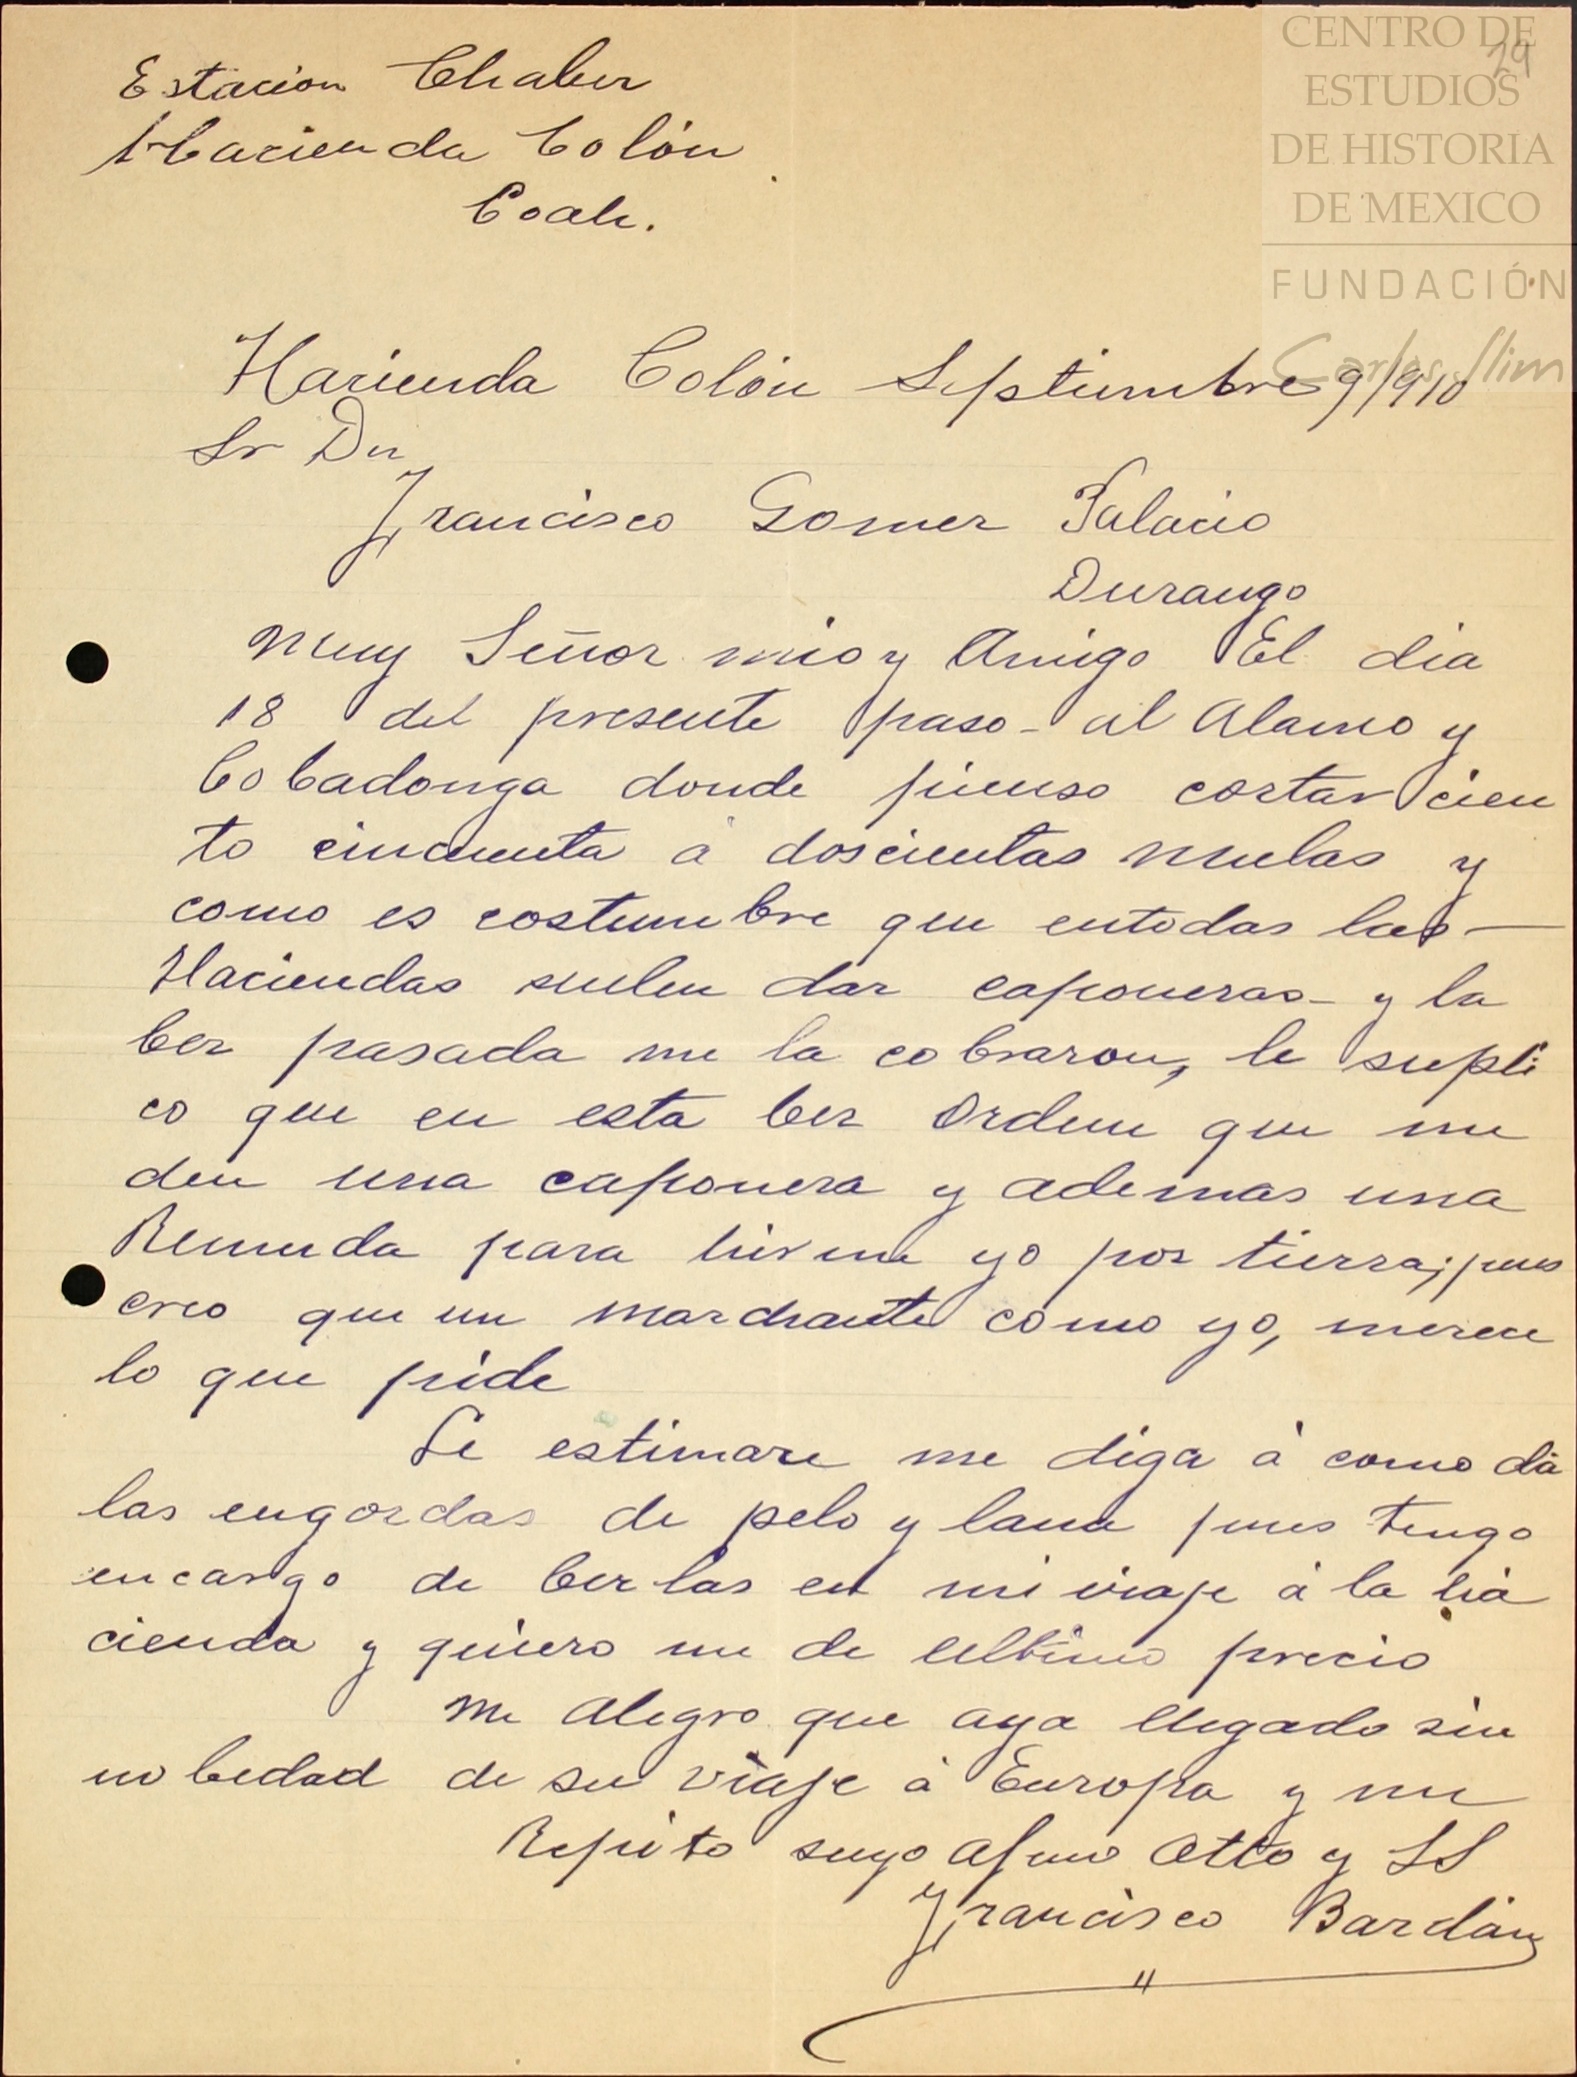 CENTRO DE
ESTUDIOS
DE HISTORIA
DE MEXICO
FUNDACIÓN
Carlos Slim
29
Estacion Chaber
Hacienda Colón
Coah.
Hacienda Colón Septiembre 9/910
Sr Dn
Francisco Gomez Palacio
Durango
Muy Señor mio y Amigo El dia
18 del presente paso- al Alamo y
Cobadonga donde pienso cortar cien
to cincuenta á doscientas mulas y
como es costumbre que entodas las—
Haciendas suelen dar caponeras- y la
bez pasada me la cobraron, le supli
co que en esta bez Ordene que me
den una caponera y ademas una
Remuda para hirme yo por tierra; pues
creo que un marchante como yo, merece
lo que pide
Le estimare me diga á como dá
las engordas de pelo y lana pues tengo
encargo de berlas en mi viaje á la há
cienda y quiero me de ultimo precio
Me alegro que aya llegado sin
nobedad de su viaje á Europa y me
Repito suyo afmo Atto y SS
Francisco Bardán